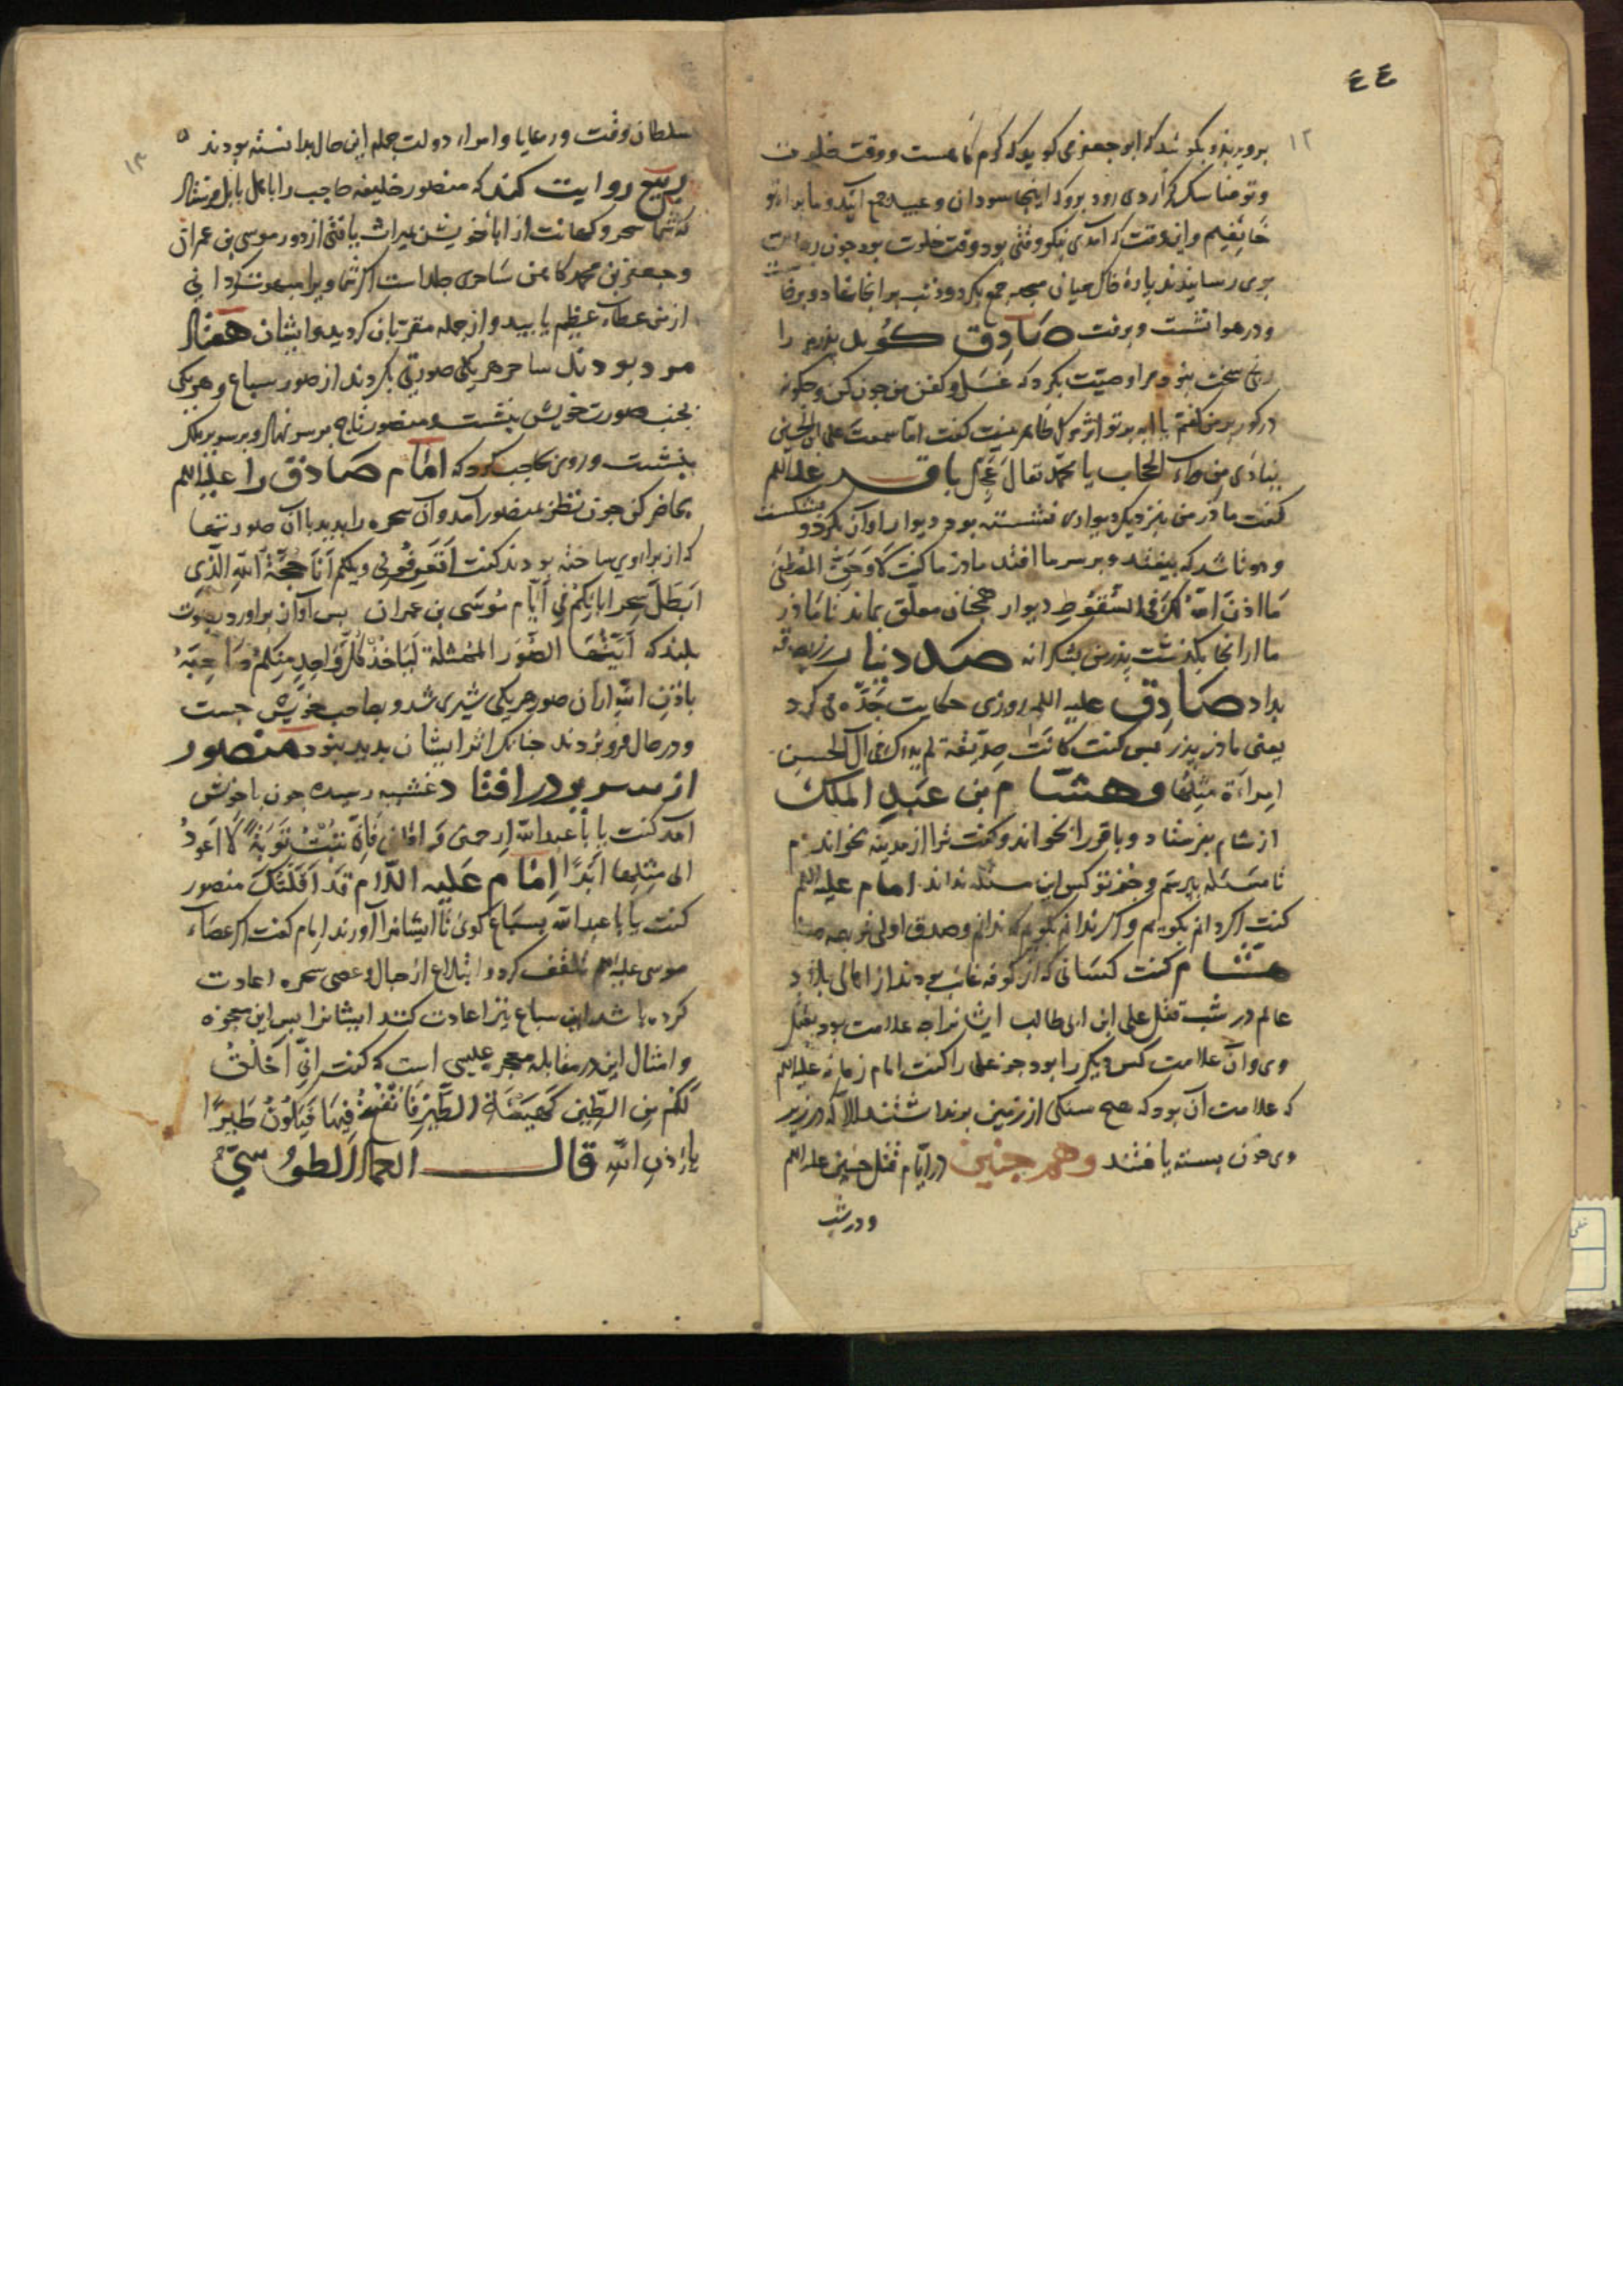 ٤٤
١٢
برو بزد بگوئید که ابو جعفر می گوید که کرم کاهست و وقت خلوت
و تو مناسک گزاردی زود برو که اینجا سودان و عبید جمع آیند و ما بر تو
خائفیم و این وقت که آمدی نیکو وقتی بود وقت خلوت بود چون رسالت
بوی رسانیدند پارهٔ خاک میان مسجد جمع بکرد و ذنب بر انجا نهاد و برخاست
و در هوا نشست و برفت صادق گوید پدرم را
رنجی سخت بود مرا وصیت بکرد که غسل و کفن من چون کن و چگونه
در گور بر من گفتم یا ابه بر تو اثر مرگ ظاهر نیست گفت اما سمعت علی بن الحسین
ینادی من وراء الحجاب یا محمد تعال عجل باقر علیه السلم
گفت مادر من بنزدیک دیواری نشسته بود دیوار آواز بکرد و بشکست
و دوتا شد که بیفتد و بر سر ما افتد مادر ما گفت لا و حق المصطفی
ما اذن الله لک فی السقوط دیوار همچنان معلق بماند تا مادر
ما از انجا بگذشت پدرم بشکرانه صد دینار زر بصدقه
بداد صادق علیه السلم روزی حکایت جده می کرد
یعنی مادر پدر پس گفت کانت صدیقة لم یدرک فی آل الحسن
امراءة مثلها و هشام بن عبد الملک
از شام بفرستاد و باقر را بخواند و گفت ترا از مدینه بخواندم
تا مسئله بپرسم و جز تو کس این مسئله نداند امام علیه السلم
گفت اگر دانم بگویم و اگر ندانم بگویم که ندانم و صدق اولی تر بود
هشام گفت کسانی که از کوفه غائب بودند از اهالی بلاد
عالم در شب قتل علی ابن ابی طالب ایشانرا چه علامت بود بقتل
وی و آن علامت کس دیگر را بود جز علی را گفت امام زمانه علیه السلم
که علامت آن بود که هیچ سنگی از زمین برنداشتند الا که در زیر
وی خون بسته یافتند و همچنین در ایام قتل حسین علیه السلم
و در شب
١٣
سلطان وقت و رعایا و امراء دولت جمله این حال بدانسته بودند
ربیع روایت کند که منصور خلیفه حاجب را باهل بابل فرستاد
که شما سحر و کهانت از اباء خویش میراث یافتی از دور موسی بن عمران
و جعفر بن محمد کاهن ساحری جلد است اگر شما ویرا مبهوت گردانی
از من عطاء عظیم یابید و از جمله مقربان گردید و ایشان هفتاد
مرد بودند ساحر هر یکی صورتی بکردند از صور سباع و هر یکی
بجنب صورت خویش بنشست و منصور تاج بر سر نهاد و بر سریر ملک
بنشست و روی بحاجب کرد که امام صادق را علیه السلم
حاضر کن چون نظر منصور آمد و آن سحره را بدید با آن صورتها
که از برا وی ساخته بودند گفت اتعرفونی ویلکم انا حجة الله الذی
ابطل سحر ابائکم فی ایام موسی بن عمران پس آواز براورد بصوت
بلند که ایتها الصور الممثلة لیاخذ کل واحد منکم صاحبه
باذن الله از ان صور هر یکی شیری شد و بصاحب خویش جست
و در حال فرو بردند چنانک اثر ایشان پدید نبود منصور
از سریر در افتاد غشیه رسیده چون باخوش
آمد گفت یا با عبد الله ارحمنی و اقلنی فانی تبت توبة لا اعود
الی مثلها ابدا امام علیه السلام قد اقلتک منصور
گفت یا با عبد الله بسباع گوی تا ایشانرا آورند امام گفت اگر عصاء
موسی علیه السلم تلقف کرد و ابتلاع از حبال و عصی سحره اعادت
کرده باشد این سباع نیز اعادت کنند ایشانرا پس این معجزه
و امثال این در مقابله معجز عیسی است که گفت انی اخلق
لکم من الطین کهیئة الطیر فانفخ فیها فیکون طیرا
باذن الله قال العماد الطوسی